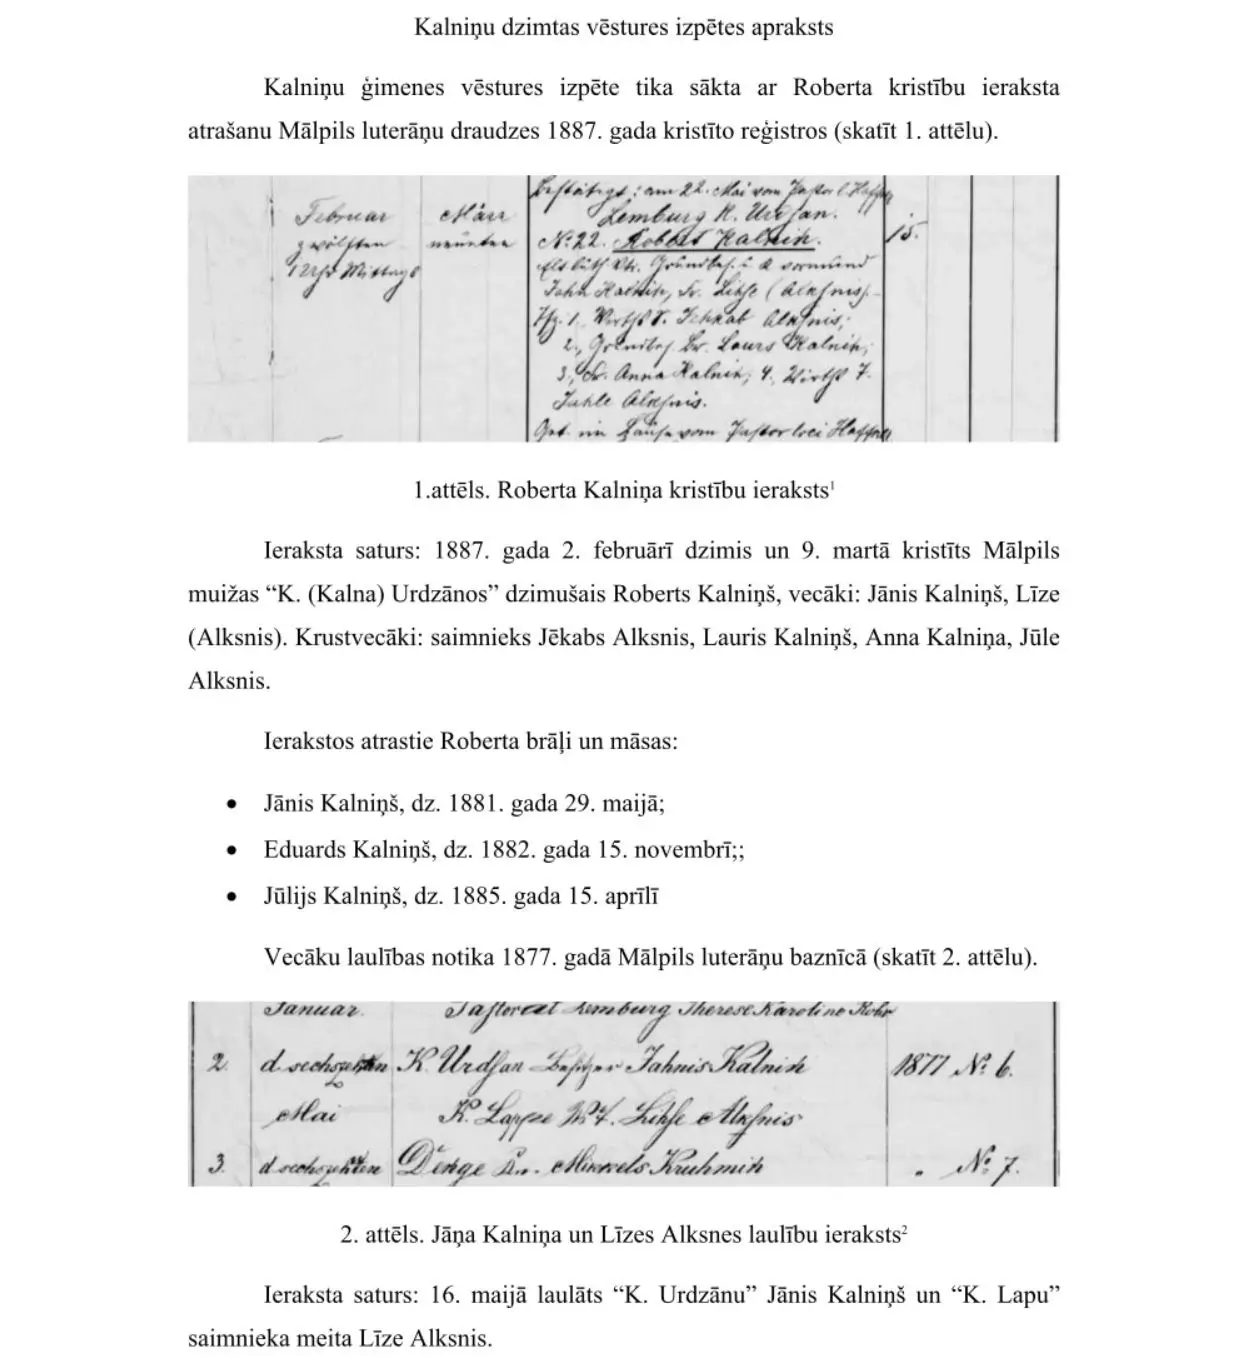 Kalniņu dzimtas vēstures izpētes apraksts
Kalniņu ģimenes vēstures izpēte tika sākta ar Roberta kristību ieraksta
atrašanu Mālpils luterāņu draudzes 1887. gada kristīto reģistros (skatīt 1. attēlu).
bestätigt: am 22. Mai vom Pastor
Februar März Lemburg K. Urdsan.
zwölften neunten No. 22. Robert Kalnin. 15.
1 Uhr Mittags
Jahn Kalnin, Fr. Lihse (Alksnis).
1, Wirths S. Jehkab Alksnis;
2, Grundbes. Br. Laurs Kalnin;
3, Fr. Anna Kalnin; 4, Wirths T.
Juhle Alksnis.
Get. im Hause vom Pastor loci
1.attēls. Roberta Kalniņa kristību ieraksts¹
Ieraksta saturs: 1887. gada 2. februārī dzimis un 9. martā kristīts Mālpils
muižas “K. (Kalna) Urdzānos” dzimušais Roberts Kalniņš, vecāki: Jānis Kalniņš, Līze
(Alksnis). Krustvecāki: saimnieks Jēkabs Alksnis, Lauris Kalniņš, Anna Kalniņa, Jūle
Alksnis.
Ierakstos atrastie Roberta brāļi un māsas:
• Jānis Kalniņš, dz. 1881. gada 29. maijā;
• Eduards Kalniņš, dz. 1882. gada 15. novembrī;;
• Jūlijs Kalniņš, dz. 1885. gada 15. aprīlī
Vecāku laulības notika 1877. gadā Mālpils luterāņu baznīcā (skatīt 2. attēlu).
Januar. Pastorat Lemburg Therese Karoline
2. d. sechszehnten K. Urdsan Besitzer Jahnis Kalnin 1877 No. 6.
Mai K. Lappe Lihse Alksnis
3. d. sechszehnten Mikkels Kruhmin " No. 7.
2. attēls. Jāņa Kalniņa un Līzes Alksnes laulību ieraksts²
Ieraksta saturs: 16. maijā laulāts “K. Urdzānu” Jānis Kalniņš un “K. Lapu”
saimnieka meita Līze Alksnis.